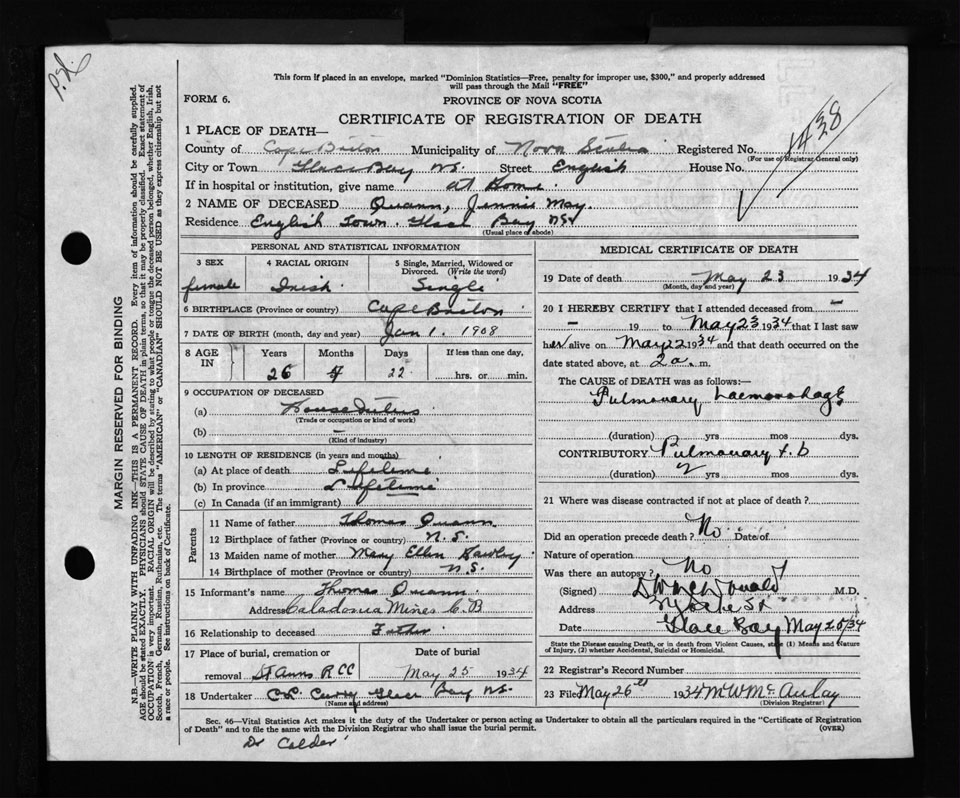 P.D.
This form if placed in an envelope, marked "Dominion Statistics—Free, penalty for improper use, $300," and properly addressed
will pass through the Mail "FREE"
FORM 6.
PROVINCE OF NOVA SCOTIA
CERTIFICATE OF REGISTRATION OF DEATH
1438
1 PLACE OF DEATH—
County of Cape Breton Municipality of Nova Scotia Registered No.
(For use of Registrar General only)
City or Town Glace Bay NS. Street English House No.
If in hospital or institution, give name at Home.
2 NAME OF DECEASED Quann, Jennie May.
Residence English Town. Glace Bay NS
(Usual place of abode)
MARGIN RESERVED FOR BINDING
N.B.—WRITE PLAINLY WITH UNFADING INK—THIS IS A PERMANENT RECORD. Every item of information should be carefully supplied.
AGE should be stated EXACTLY. PHYSICIANS should STATE CAUSE OF DEATH in plain terms, so that it may be properly classified. Exact statement of
OCCUPATION is very important. RACIAL ORIGIN will be described by stating to what people or tongue the deceased person belonged, whether English, Irish,
Scotch, French, German, Russian, Ruthenian, etc. The terms "AMERICAN" or "CANADIAN" SHOULD NOT BE USED as they express citizenship but not
a race or people. See instructions on back of Certificate.
PERSONAL AND STATISTICAL INFORMATION
3 SEX
female
4 RACIAL ORIGIN
Irish
5 Single, Married, Widowed or
Divorced. (Write the word)
Single
6 BIRTHPLACE (Province or country) Cape Breton
7 DATE OF BIRTH (month, day and year) Jan 1. 1908
8 AGE
IN
Years Months Days If less than one day,
26 4 22 hrs. or min.
9 OCCUPATION OF DECEASED
(a) House
(Trade or occupation or kind of work)
(b) —
(Kind of industry)
10 LENGTH OF RESIDENCE (in years and months)
(a) At place of death Lifetime
(b) In province Lifetime
(c) In Canada (if immigrant)
Parents
11 Name of father Thomas Quann
12 Birthplace of father (Province or country) N.S.
13 Maiden name of mother Mary Ellen
14 Birthplace of mother (Province or country) N.S.
15 Informant's name Thomas Quann
Address Caladonia Mines C.B
16 Relationship to deceased Father
17 Place of burial, cremation or
removal St Anns R.CC
Date of burial
May 25 1934
18 Undertaker C.P. Curry Glace Bay NS.
(Name and address)
MEDICAL CERTIFICATE OF DEATH
19 Date of death May 23 1934
(Month, day and year)
20 I HEREBY CERTIFY that I attended deceased from —
— 19 to May 23 1934 that I last saw
her alive on May 22 1934 and that death occurred on the
date stated above, at 2 a. m.
The CAUSE OF DEATH was as follows:—
Pulmonary Haemorrhage
(duration) yrs mos dys.
CONTRIBUTORY Pulmonary t.b
(duration) 2 yrs mos dys.
21 Where was disease contracted if not at place of death?
Did an operation precede death? No. Date of
Nature of operation
Was there an autopsy? No
(Signed) McDonald M.D.
Address
Glace Bay
Date May 25/34
State the Disease causing Death, or in death from Violent Causes, state (1) Means and Nature
of Injury, (2) whether Accidental, Suicidal or Homicidal.
22 Registrar's Record Number
23 Filed May 26th 1934 M W McAulay
(Division Registrar)
Sec. 46—Vital Statistics Act makes it the duty of the Undertaker or person acting as Undertaker to obtain all the particulars required in the "Certificate of Registration
of Death" and to file the same with the Division Registrar who shall issue the burial permit.
(OVER)
Dr Calder